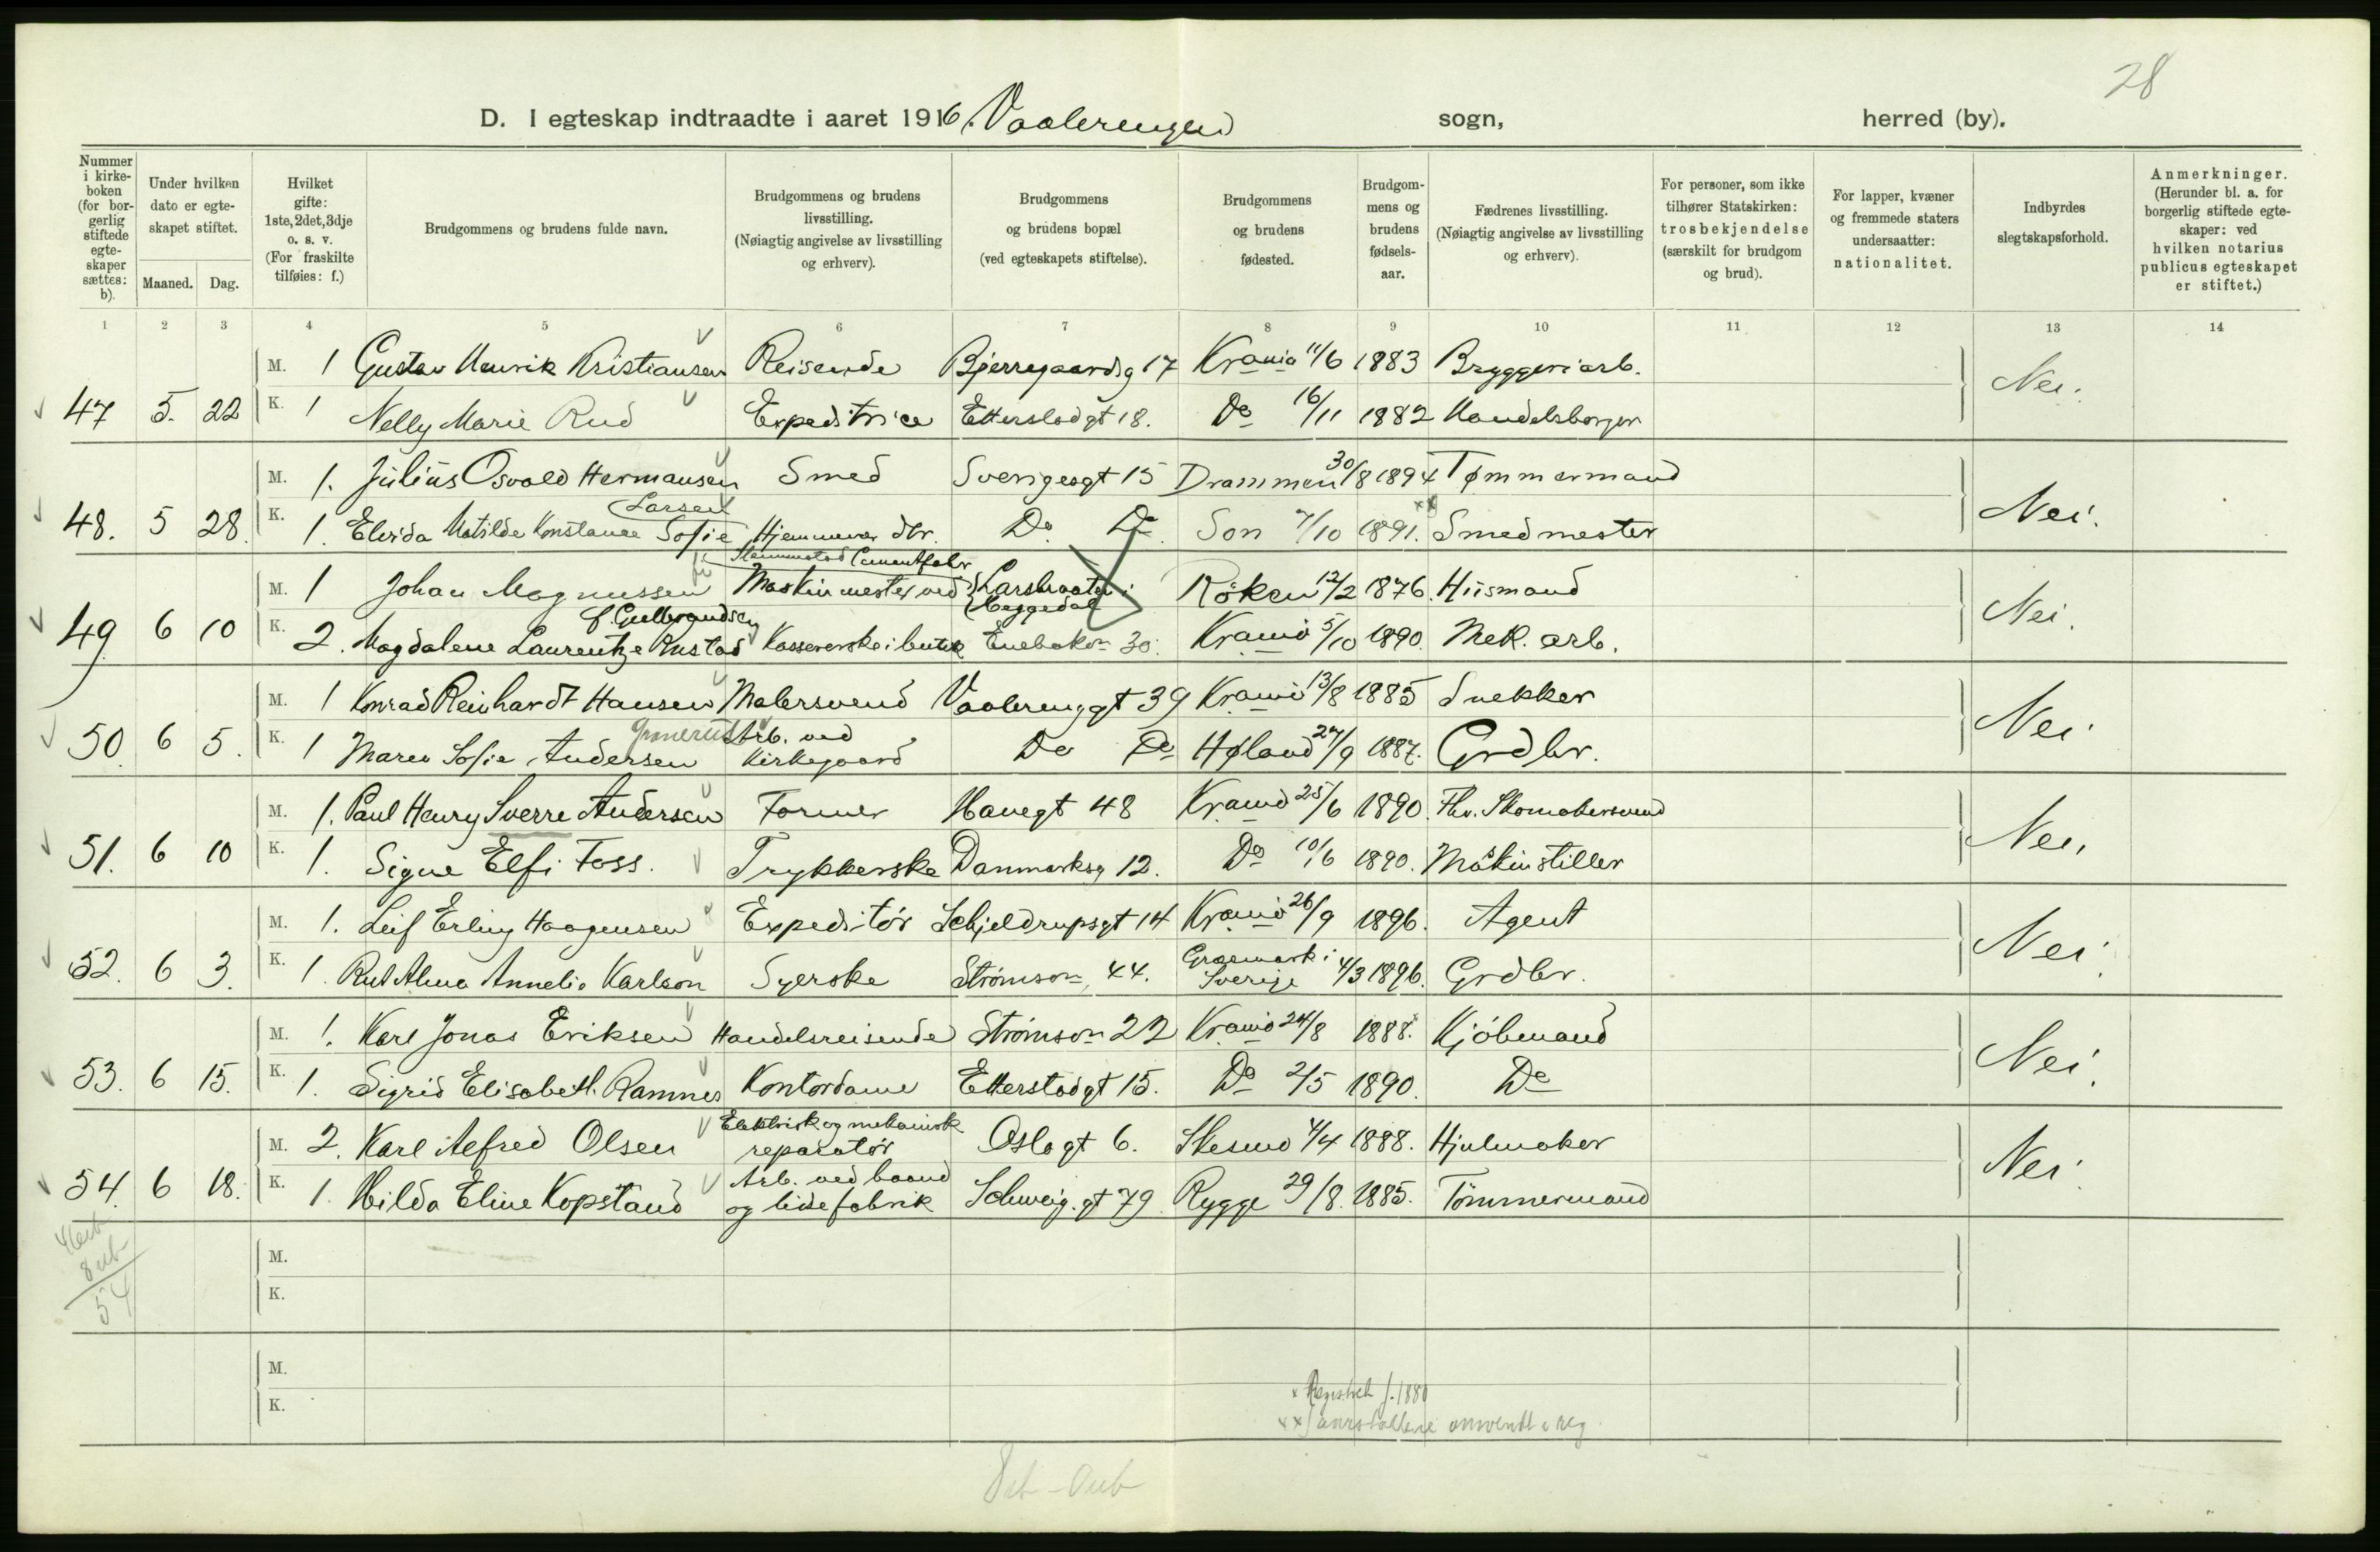 28
D. I egteskap indtraadte i aaret 1916. Vaalerengen sogn, herred (by).
Nummer i kirke-boken (for bor-gerlig stiftede egte-skaper sættes: b).
Under hvilken dato er egte-skapet stiftet.
Maaned. Dag.
Hvilket gifte: 1ste, 2det, 3dje o. s. v. (For fraskilte tilføies: f.)
Brudgommens og brudens fulde navn.
Brudgommens og brudens livsstilling. (Nøiagtig angivelse av livsstilling og erhverv).
Brudgommens og brudens bopæl (ved egteskapets stiftelse).
Brudgommens og brudens fødested.
Brudgom-mens og brudens fødsels-aar.
Fædrenes livsstilling. (Nøiagtig angivelse av livsstilling og erhverv).
For personer, som ikke tilhører Statskirken: trosbekjendelse (særskilt for brudgom og brud).
For lapper, kvæner og fremmede staters undersaatter: nationalitet.
Indbyrdes slegtskapsforhold.
Anmerkninger. (Herunder bl. a. for borgerlig stiftede egte-skaper: ved hvilken notarius publicus egteskapet er stiftet.)
1 2 3 4 5 6 7 8 9 10 11 12 13 14
M. 1 Gustav Henrik Kristiansen Reisende Bjerregaardsg 17 Krania 11/6 1883 Bryggeriarb.
47 5. 22 K. 1 Nelly Marie Rud Expeditrice Etterstadgt 18. Do 16/11 1882 Handelsborger Nei.
M. 1. Julius Osvald Hermansen Smed Sverigesgt 15 Drammen 30/8 1894 Tømmermand
Larsen
48. 5 28. K. 1. Elvida Matilde Konstance Sofie Hjemmevær. dtr. Do Do Son 7/10 1891. xx Smedmester Nei.
Slemmestad Cementfabr.
M. 1 Johan Magnussen Maskinmester ved Røken 12/2 1876. Husmand
Heggedal
f. Gulbrandsen
49 6 10 K. 2. Magdalene Laurentze Rustad Kassererske i butik Enebakv 30. Krania 5/10 1890. Mek. arb. Nei.
M. 1 Konrad Reinhardt Hansen Malersvend Vaalerenggt 39 Krania 13/8 1885 Snekker
Grønerud
50. 6 5. K. 1 Maren Sofie Andersen Arb. ved Kirkegaard Do Do Høland 27/9 1887. Grdbr. Nei
M. 1. Paul Henry Sverre Andersen Former Havegt 48 Krania 25/6 1890. Fhv. Skomakersvend
51. 6 10 K. 1. Signe Elfi Foss. Trykkerske Danmarksg 12. Do 10/6 1890. Maskinstiller Nei.
M. 1. Leif Erling Haagensen Expeditør Schjeldrupsgt 14 Krania 26/9 1896. Agent
52. 6 3. K. 1. Rut Alma Annelie Karlson Syerske Strømsv 44. Græsmark i Sverige 4/3 1896. Grdbr. Nei.
M. 1. Karl Jonas Eriksen Handelsreisende Strømsv 22 Krania 24/8 1888. Kjøbmand
53. 6 15. K. 1. Sigrid Elisabeth Ramnes Kontordame Etterstadgt 15. Do 2/5 1890. Do Nei.
M. 2. Karl Alfred Olsen Elektrisk og mekanisk reparatør Oslogt 6. Skesmo 4/4 1888. Hjulmaker
54. 6 18. K. 1. Hilda Eline Kopstand Arb. ved baand og lidsefabrik Schweig.gt 79 Rygge 29/8. 1885. Tømmermand Nei.
54
M.
K.
M.
K.
x f. 1880
xx anvendt i reg.